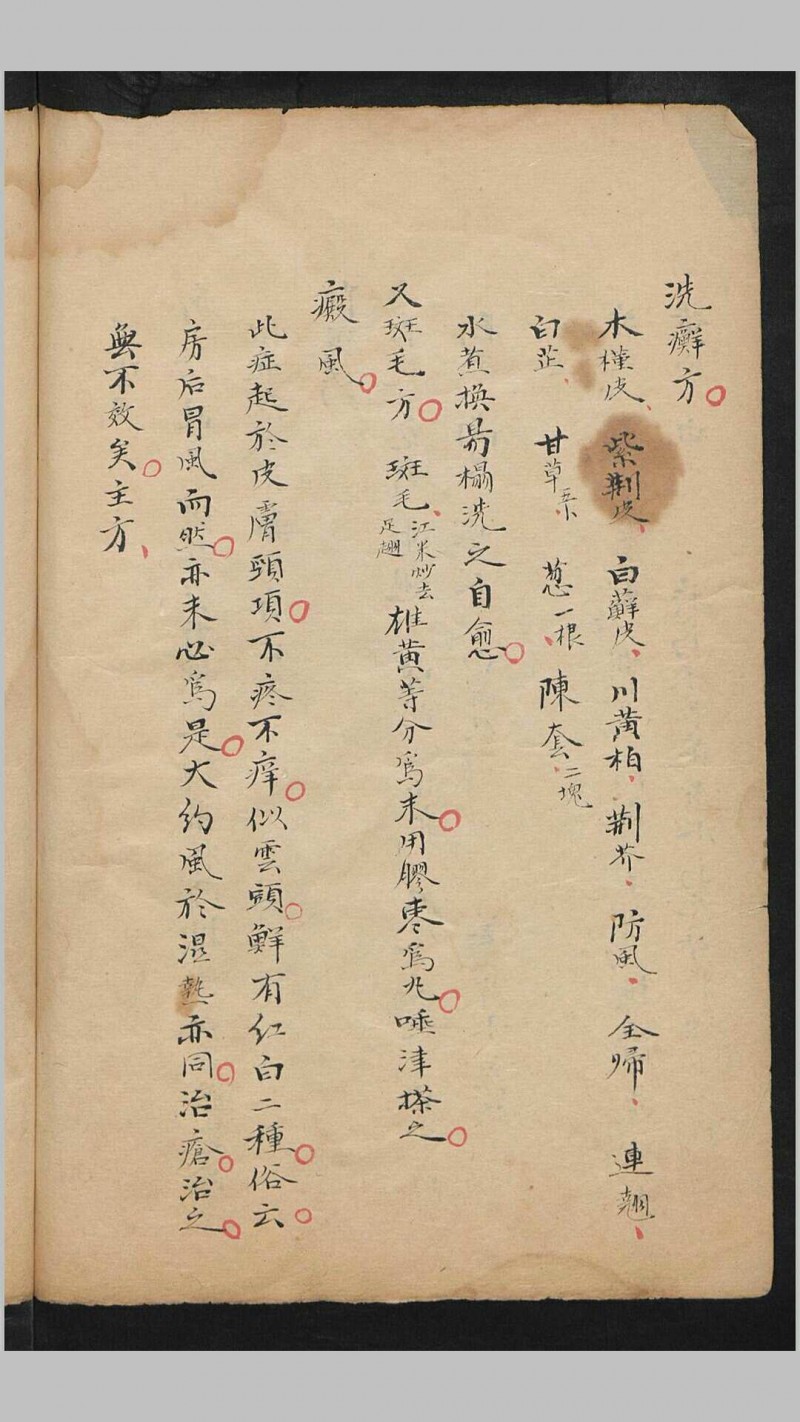 洗癬方
木槿皮 紫荆皮 白蘚皮 川黄柏 荆芥 防風 全帰 連翹
白芷 甘草五卜 葱一根 陳壺二塊
水煎換易榻洗之自愈
又斑毛方 斑毛江米炒去足翅 雄黄等分爲末用膠棗爲丸唾津搽之
癜風
此症起於皮膚頸項不疼不痒似雲頭鮮有红白二種俗云
房后冒風而然亦未必爲是大约風於湿熱亦同治瘡治之
無不效矣主方